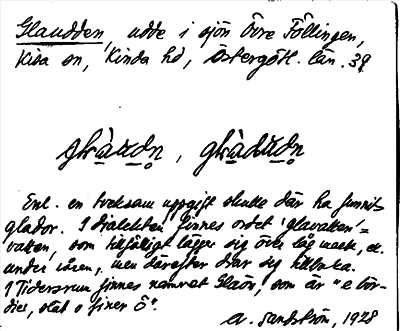 Glaudden, udde i sjön Övre Föllingen,
Kisa sn, Kinda hd, Östergötl. län. 39
Enl. en tveksam uppgift skulle där ha funnits
glador. I dialekten finnes ordet 'glavatten' =
vatten, som tillfälligt lägger sig över låg mark, ex.
under våren, men därefter drar sig tillbaka.
I Tidersrum finnes namnet Glaön, som är "e bör-
dies, slät o finer Ö".
A. Sandström, 1928